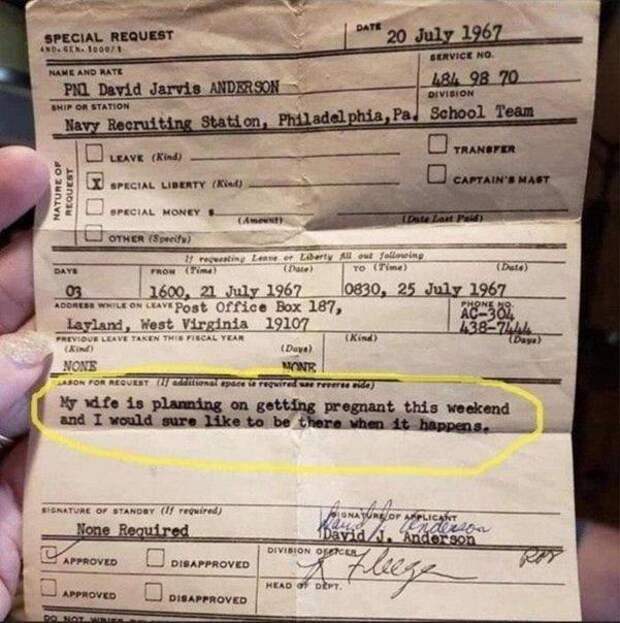 SPECIAL REQUEST
DATE 20 July 1967
NAME AND RATE
SERVICE NO.
PN1 David Jarvis ANDERSON
484 98 70
SHIP OR STATION
DIVISION
Navy Recruiting Station, Philadelphia, Pa.
School Team
NATURE OF REQUEST
LEAVE (Kind)
TRANSFER
X SPECIAL LIBERTY (Kind)
CAPTAIN'S MAST
SPECIAL MONEY $
(Amount)
(Date Last Paid)
OTHER (Specify)
If requesting Leave or Liberty fill out following
DAYS
FROM (Time) (Date)
TO (Time) (Date)
03
1600, 21 July 1967
0830, 25 July 1967
ADDRESS WHILE ON LEAVE Post Office Box 187,
PHONE NO.
AC-304
Layland, West Virginia 19107
438-7444
PREVIOUS LEAVE TAKEN THIS FISCAL YEAR
(Kind) (Days) (Kind) (Days)
NONE NONE
REASON FOR REQUEST (If additional space is required use reverse side)
My wife is planning on getting pregnant this weekend
and I would sure like to be there when it happens.
SIGNATURE OF STANDBY (If required)
SIGNATURE OF APPLICANT
None Required
David J. Anderson
David J. Anderson
APPROVED DISAPPROVED
DIVISION OFFICER
APPROVED DISAPPROVED
HEAD OF DEPT.